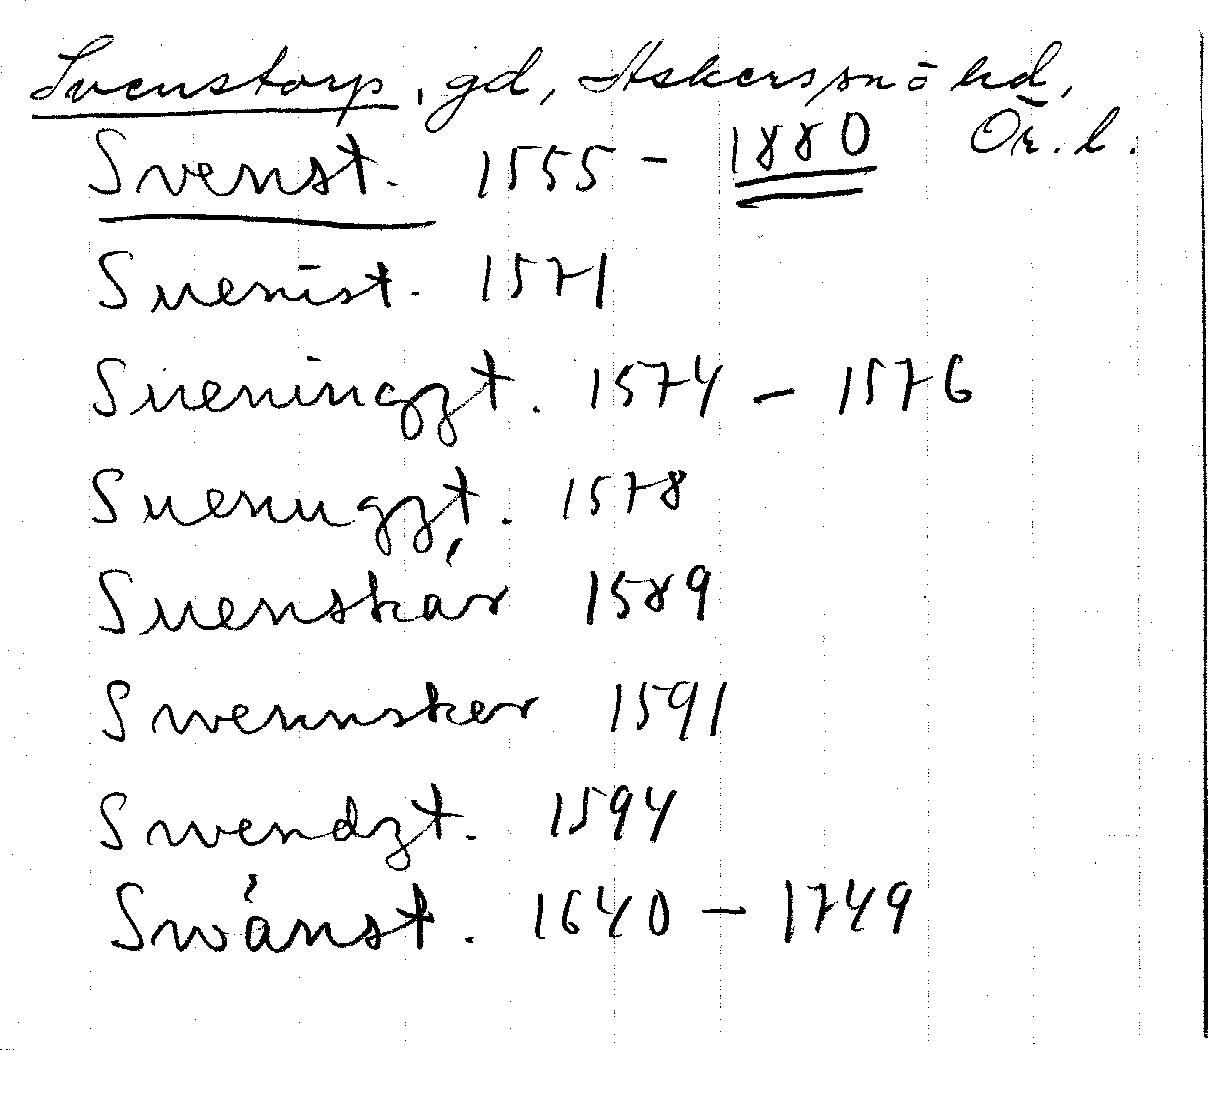 Svenstorp, gd, Askers sn o hd, Ör. l.
Svenst. 1555 - 1880
Suenist. 1571
Sueningzt. 1574 - 1576
Suenugzt. 1578
Suenskár 1589
Swennsker 1591
Swendzt. 1594
Swánst. 1640 - 1749